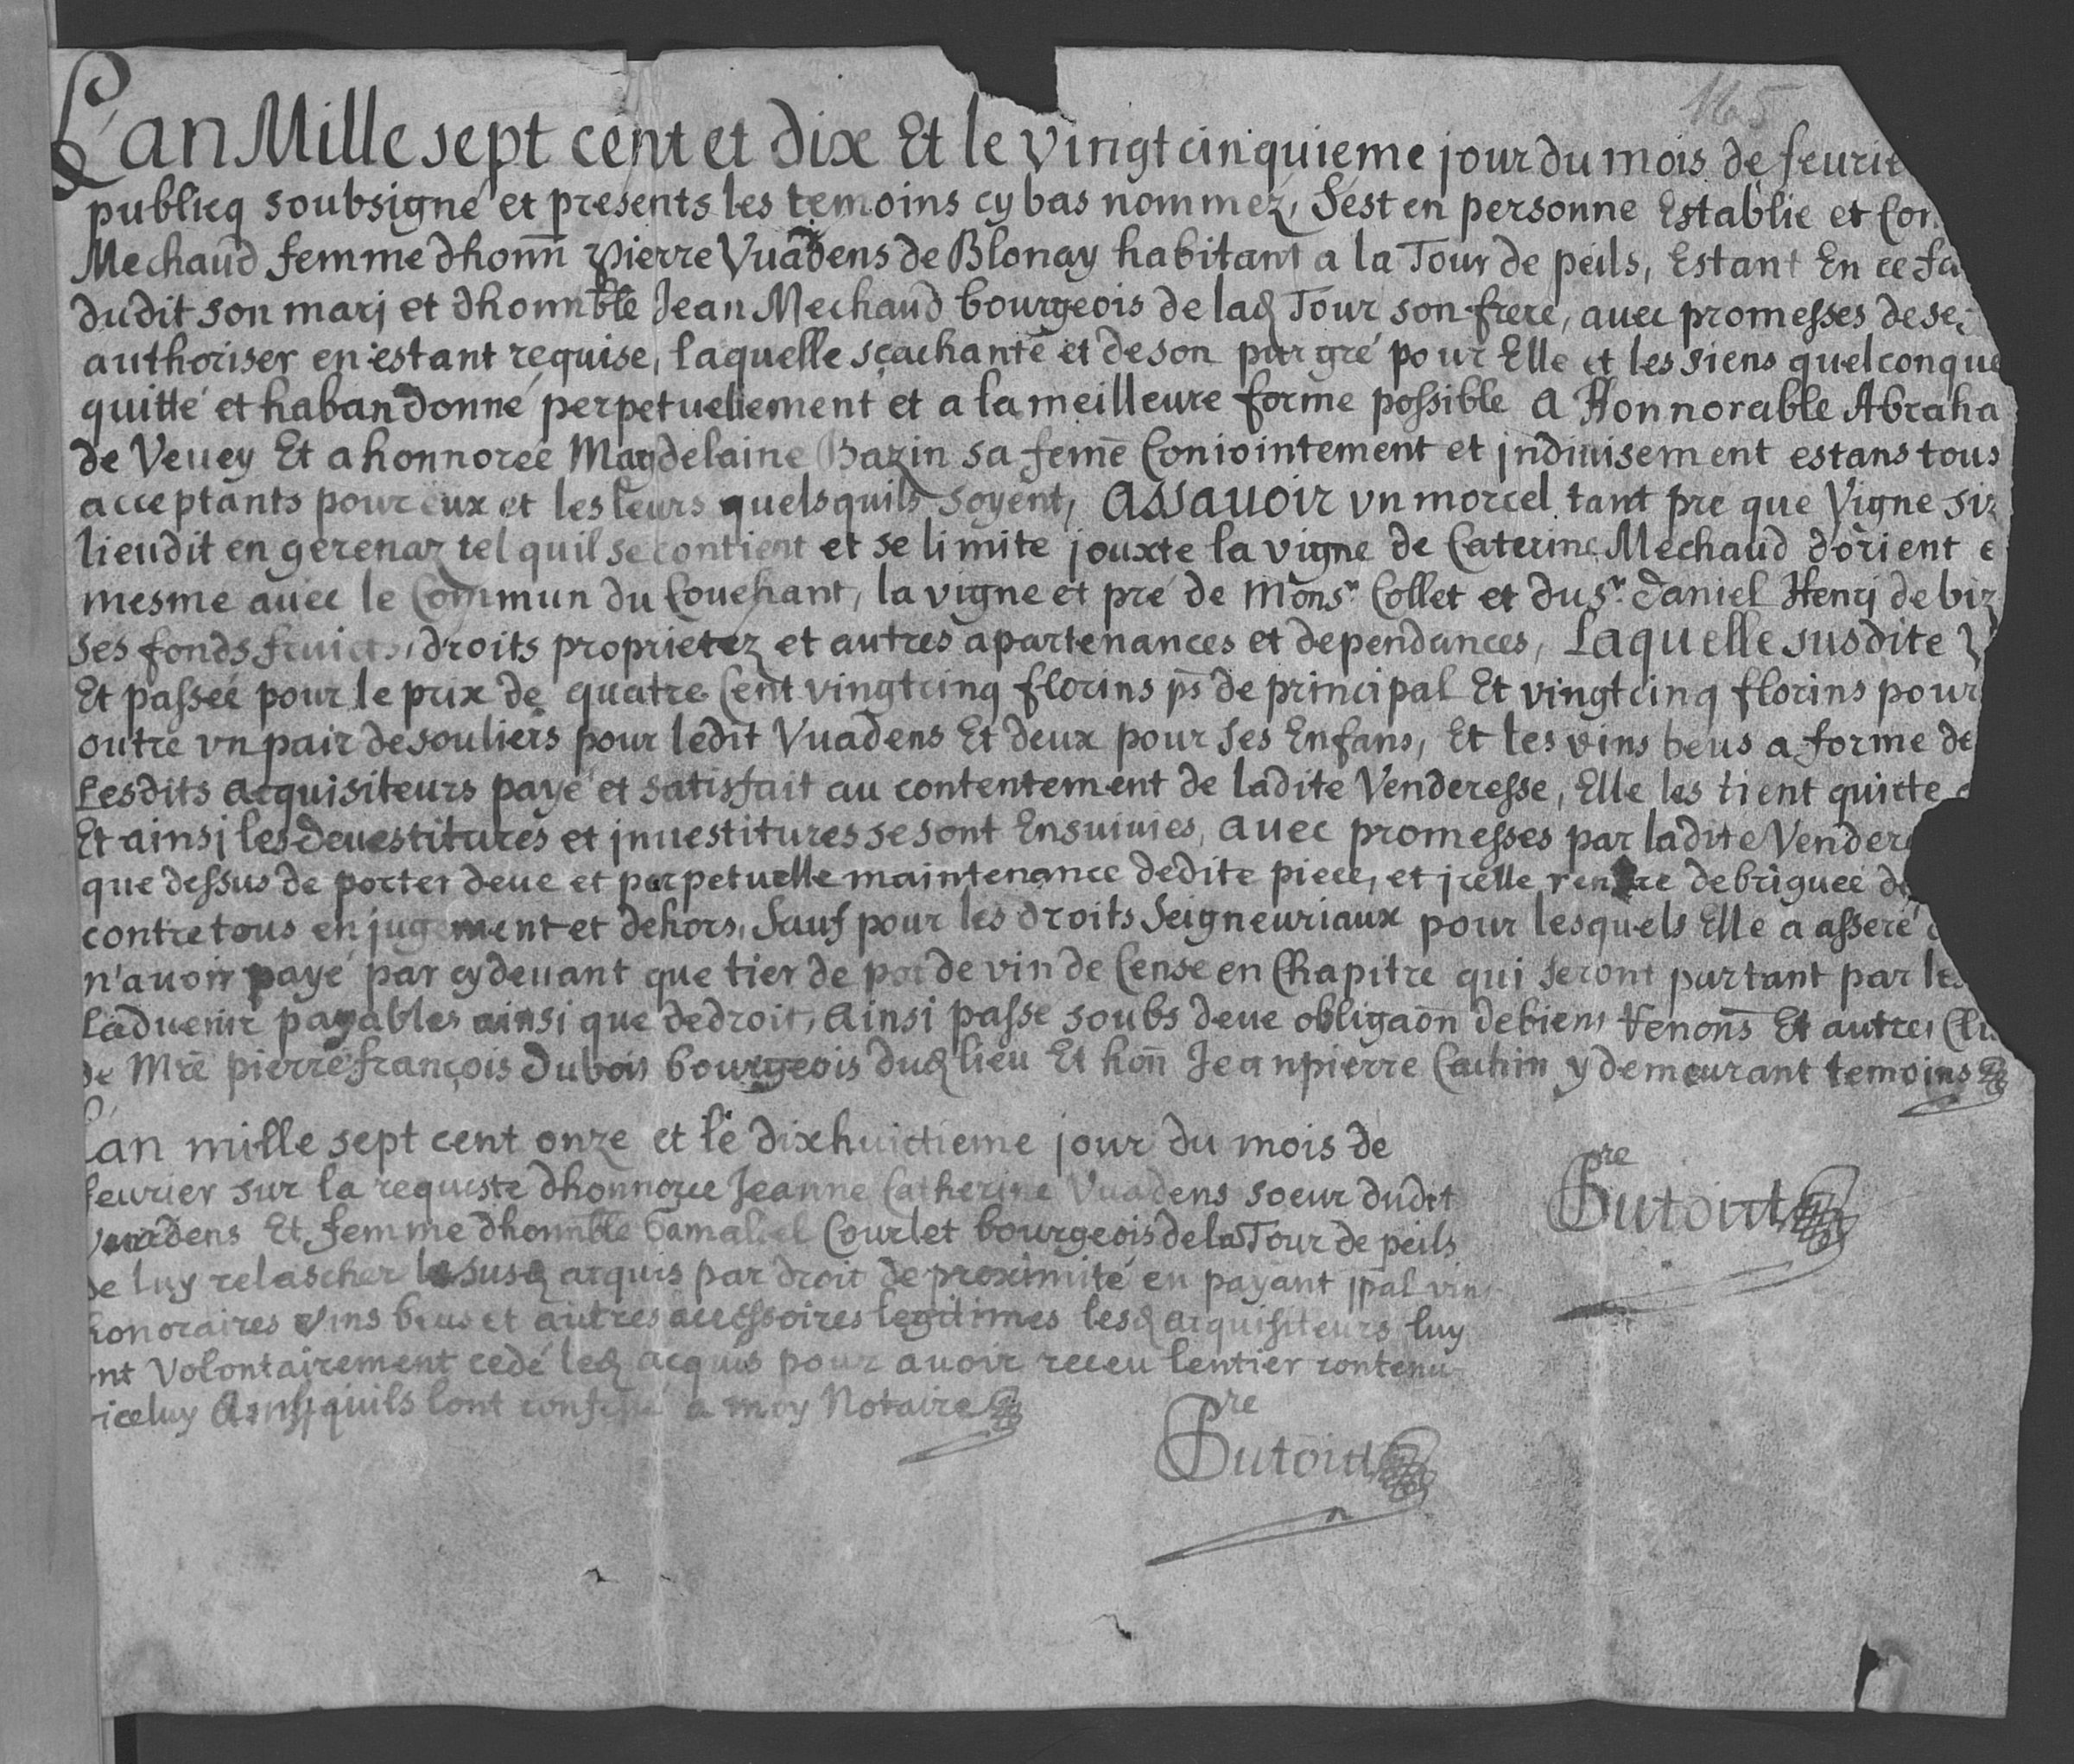 165
L'an Mille sept cent et dix Et le vingtcinquieme jour du mois de feurie
publicq soubsigné et presents les temoins cy bas nommez, S'est en personne Establie et Con
Mechaud femme dhonn̄ pierre Vuadens de Blonay habitant a la Tour de peils, Estant En ce fa
dudit son marj et dhonn̄ble Jean Mechaud bourgeois de lad Tour son frere, auec promesses de se
authoriser en estant requise, laquelle sçachante et de son pur gré pour Elle et les siens quelconque
quitté et habandonné perpetuellement et a la meilleure forme possible a Honnorable Abraha
de Veuey Et a honnoreé Magdelaine Bazin sa fem̄e Coniointement et jndiuisement estans tous
acceptants pour eux et les leurs quelsquils soyent, Assauoir vn morcel tant pre que Vigne siz
lieudit en gerenaz tel quil se contient et se limite jouxte la vigne de Caterine Mechaud d'orient e
mesme auec le Commun du Couchant, la vigne et pré de Monsr. Collet et du sr. daniel Henrj de biz
ses fonds fruicts, droits proprietez et autres apartenances et dependances, Laquelle susdite V
Et passeé pour le prix de quatre Cent vingtcinq florins ps̄ de principal Et vingtcinq florins pour
outre vn pair de souliers pour ledit Vuadens Et deux pour ses Enfans, Et les vins beus a forme de
Lesdits acquisiteurs payé et satisfait au contentement de ladite Venderesse, Elle les tient quicte
Et ainsj les deuestitures et jnuestitures se sont Ensuiuies, auec promesses par ladite Vendere
que dessus de porter deue et perpetuelle maintenance dedite piece, et jcelle rendre debrigueé de
contre tous en jugement et dehors, Sauf pour les droits Seigneuriaux pour lesquels Elle a asseré
n'auoir payé par cy deuant que tier de pot de vin de Cense en Chapitre qui seront partant par les
L'aduenir payables ainsi que de droit, Ainsi passé soubs deue obligaōn de biens Renon̄s Et autres Clu
de Mre pierre françois Dubois bourgeois dud lieu Et hon̄ Jean pierre Cachin y demeurant temoins
Dutoit
Lan mille sept cent onze et le dixhuictieme jour du mois de
feurier sur la requeste dhonnoreé Jeanne Catherine Vuadens soeur dudit
Vuadens Et femme dhonn̄ble Gamaliel Courlet bourgeois de la Tour de peils
de luy relascher le susd acquis par droit de proximité en payant pp̄al vins
honoraires vins beus et autres accessoires legitimes lesd acquisiteurs luy
ont Volontairement cedé led acquis pour auoir receu lentier contenu
diceluy Ainsj quils lont confessé a moy Notaire
Dutoit